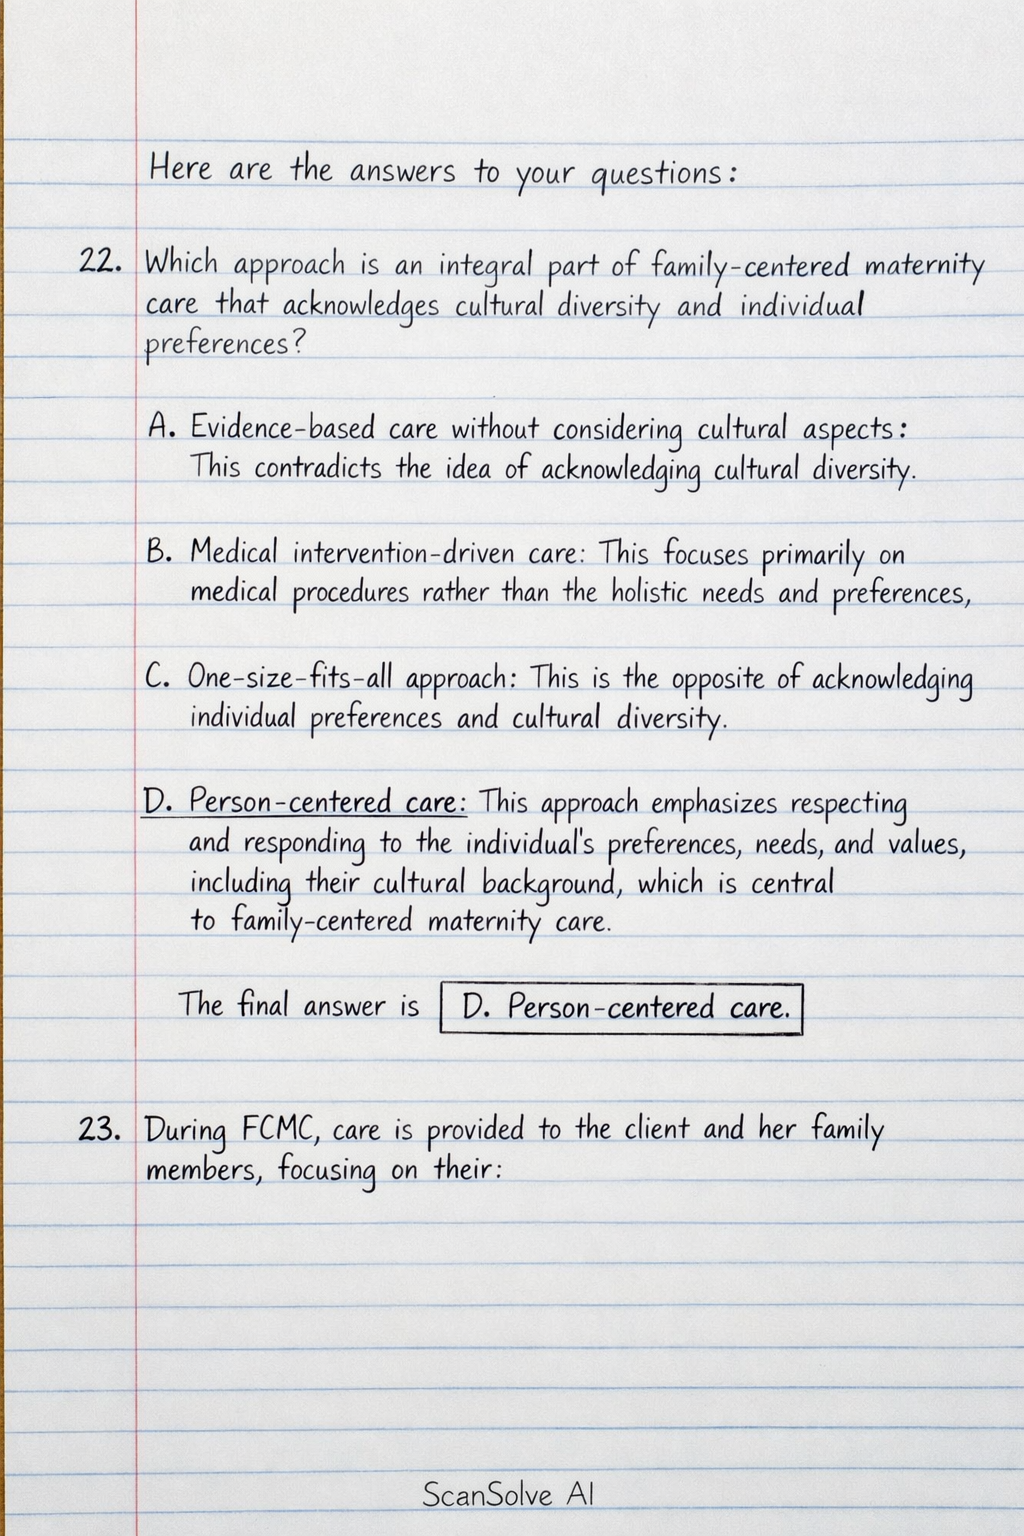 Here are the answers to your questions:
22. Which approach is an integral part of family-centered maternity
care that acknowledges cultural diversity and individual
preferences?
A. Evidence-based care without considering cultural aspects:
This contradicts the idea of acknowledging cultural diversity.
B. Medical intervention-driven care: This focuses primarily on
medical procedures rather than the holistic needs and preferences,
C. One-size-fits-all approach: This is the opposite of acknowledging
individual preferences and cultural diversity.
D. Person-centered care: This approach emphasizes respecting
and responding to the individual's preferences, needs, and values,
including their cultural background, which is central
to family-centered maternity care.
The final answer is D. Person-centered care.
23. During FCMC, care is provided to the client and her family
members, focusing on their:
ScanSolve AI